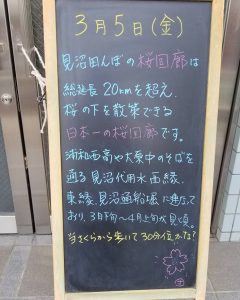 3月5日(金)
見沼田んぼの桜回廊は
総延長20kmを超え、
桜の下を散策できる
日本一の桜回廊です。
浦和西高や大原中のそばを
通る見沼代用水西縁、
東縁、見沼通船堀に連なって
おり、3月下旬〜4月上旬が見頃。
さくらから歩いて30分位かな?